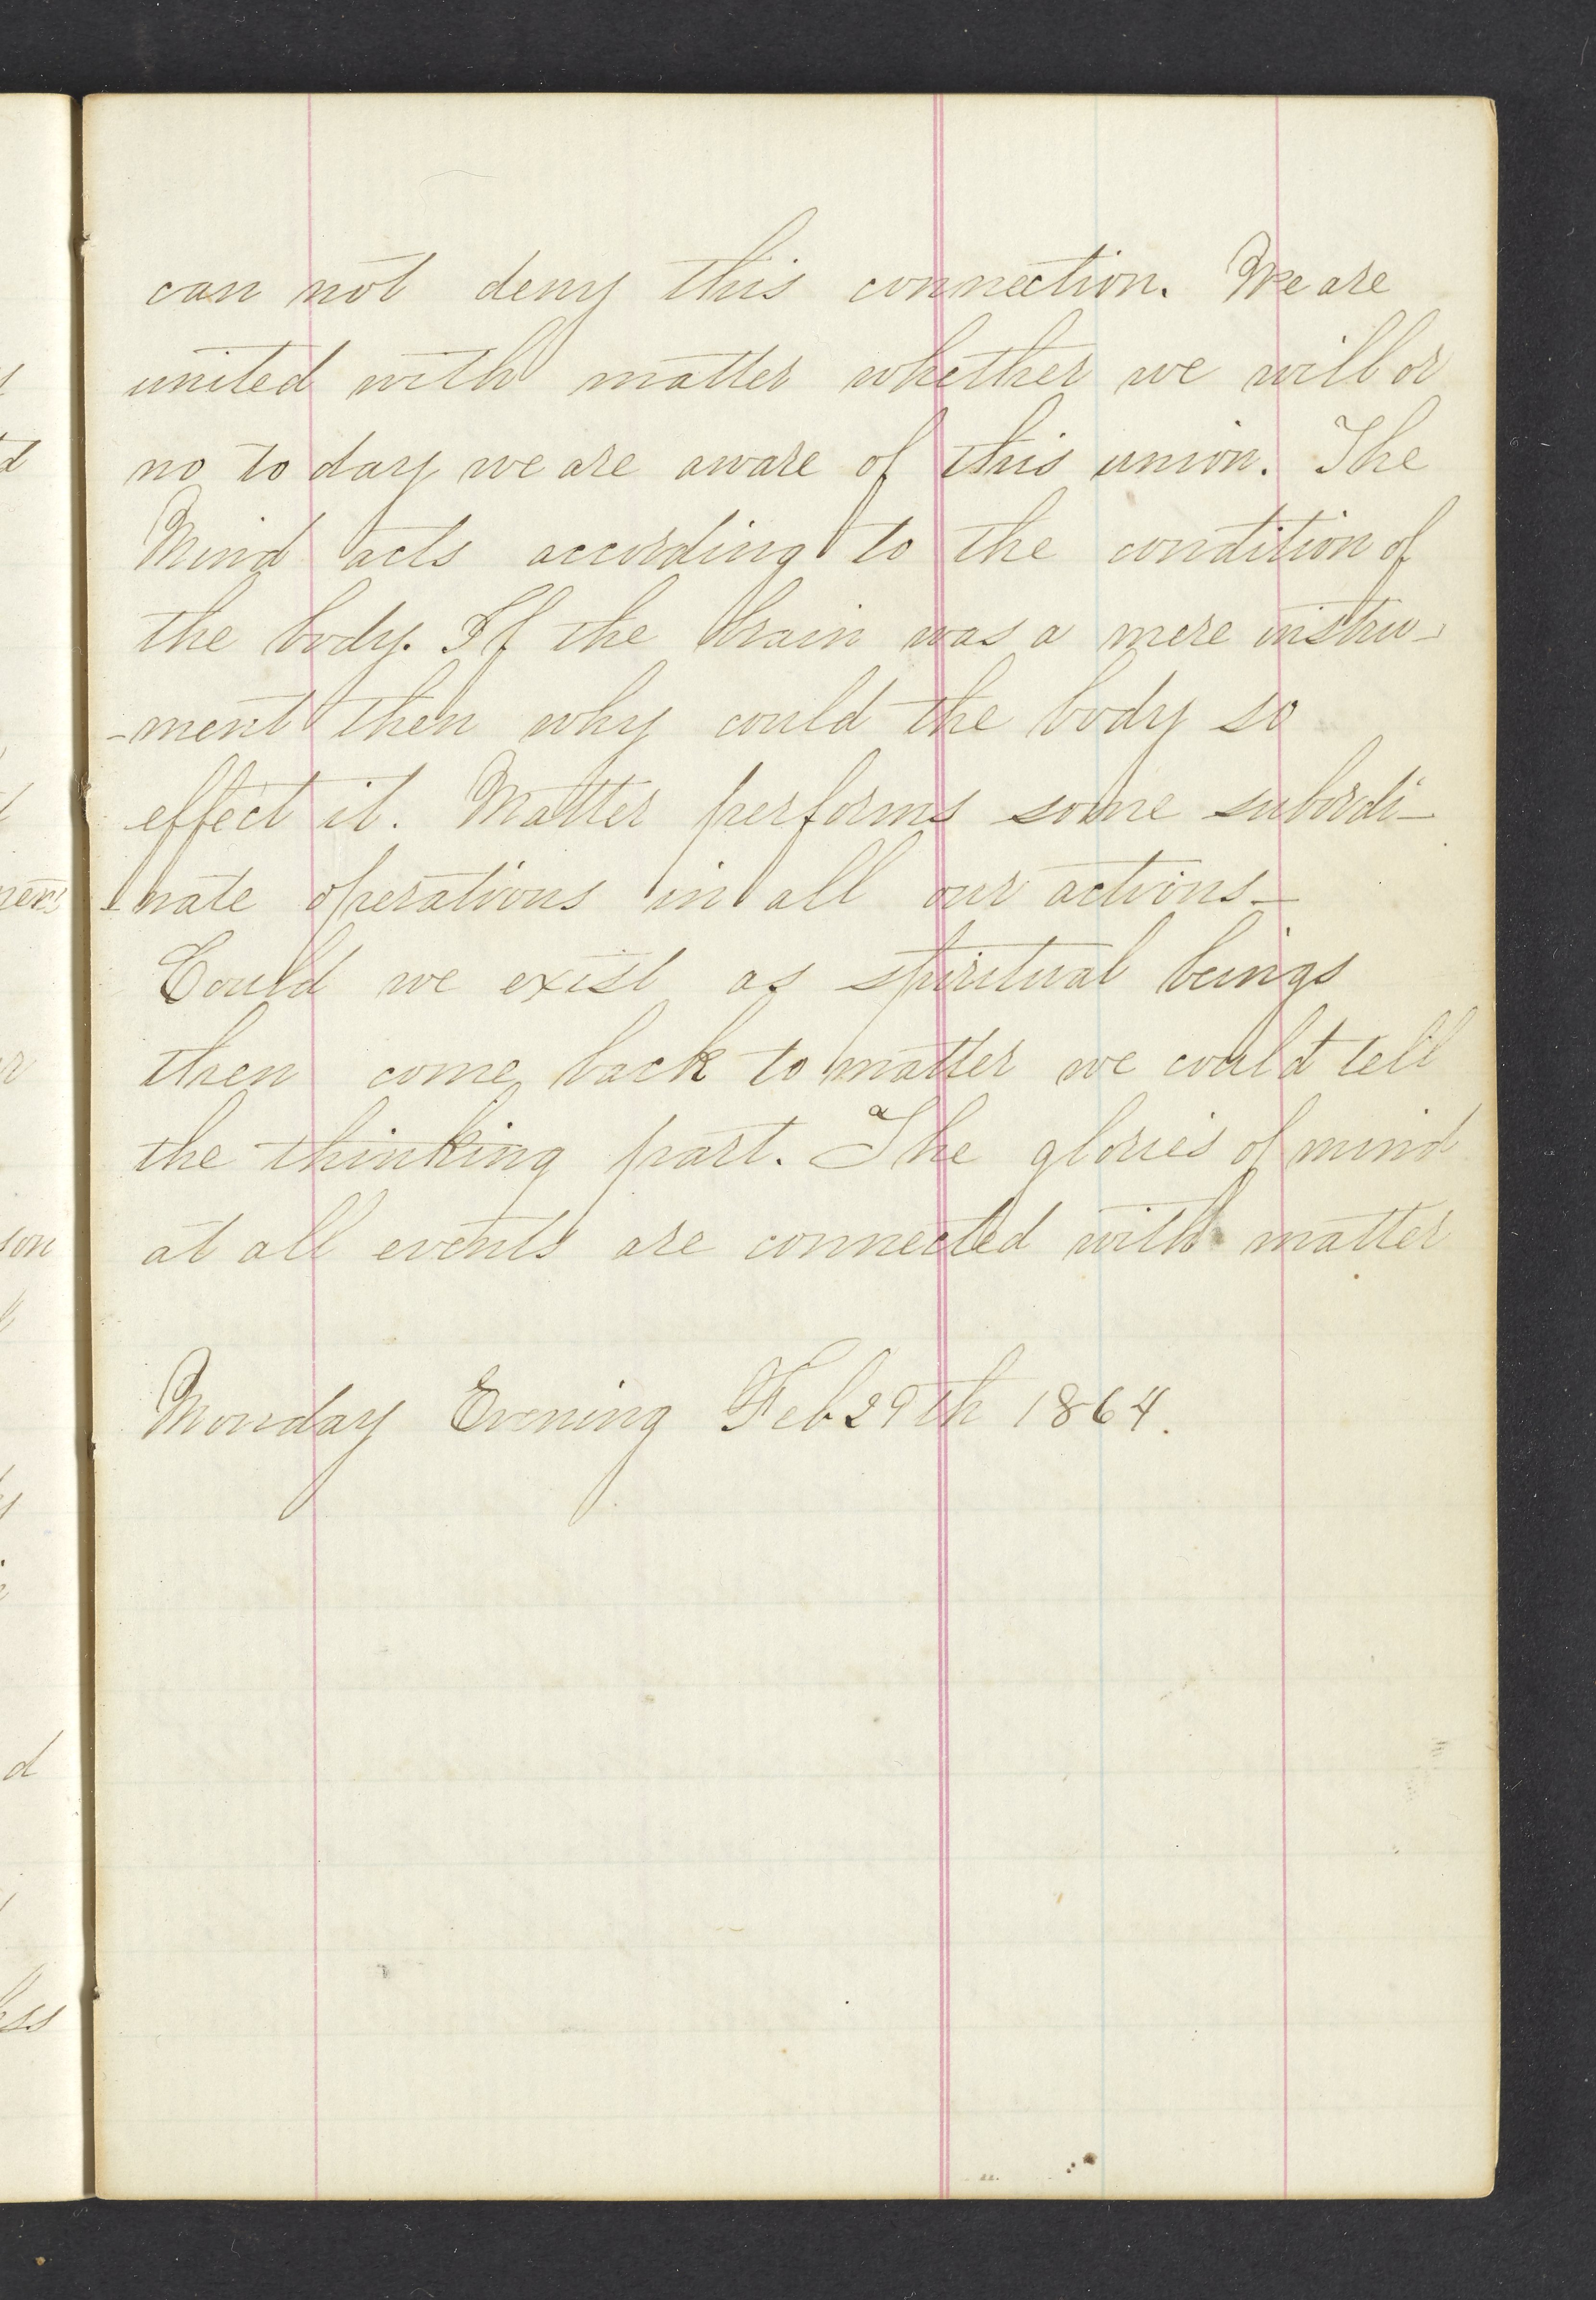 can not deny this connection. We are
united with matter whether we will or
no to day we are aware of this union. The
Mind acts according to the condition of
the body. If the brain was a mere instru-
-ment then why could the body so
effect it. Matter performs some subordi-
-nate operations in all our actions-
Could we exist as spiritual beings
then come back to matter we could tell
the thinking part. The glories of mind
at all events are connected with matter
Monday Evening Feb 29th 1864.